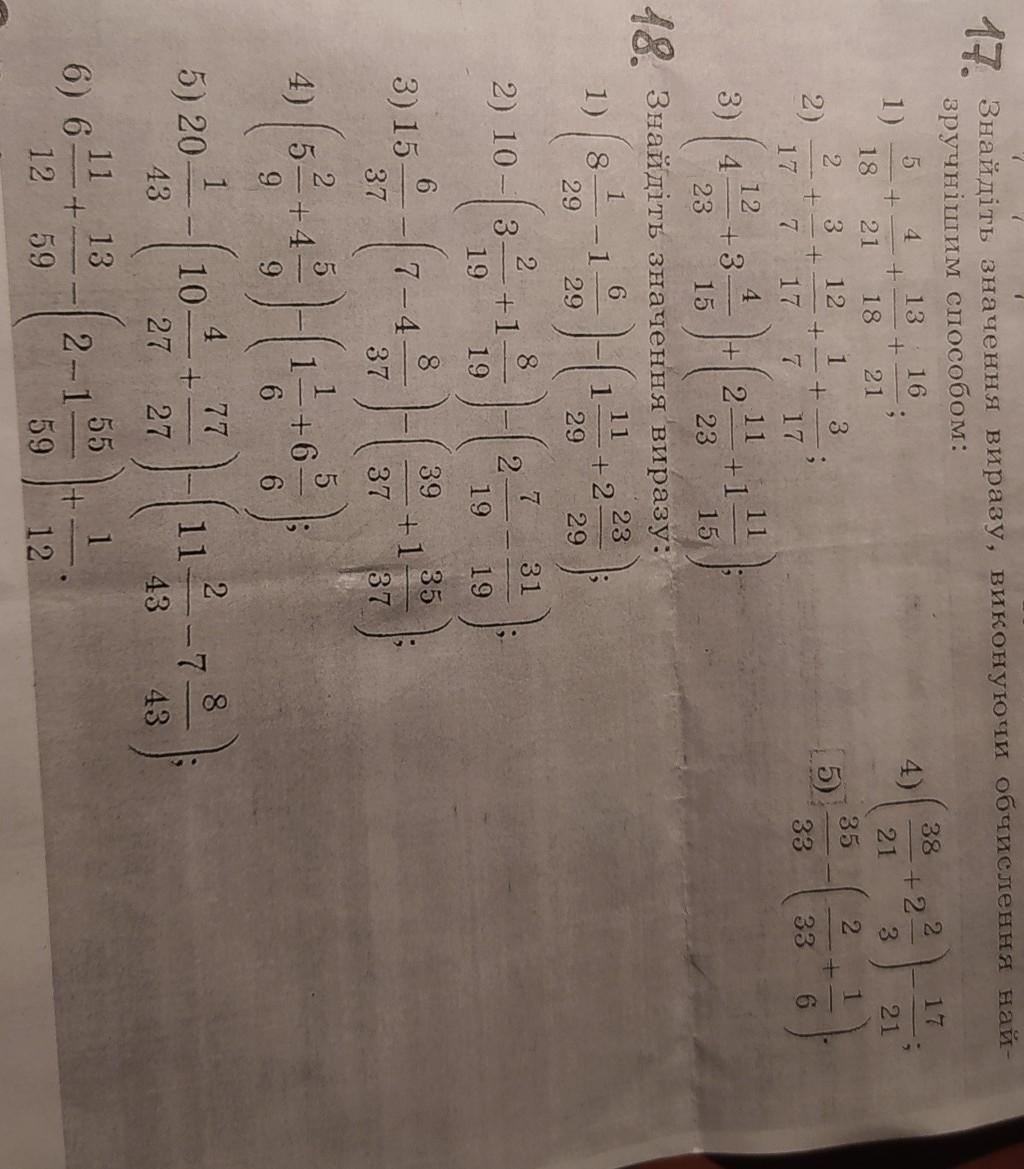 17. Знайдіть значення виразу, виконуючи обчислення най-
зручнішим способом:
1) 5/18 + 4/21 + 13/18 + 16/21;
2) 2/17 + 3/7 + 12/17 + 1/7 + 3/17;
3) (4 12/23 + 3 4/15) + (2 11/23 + 1 11/15);
4) (38/21 + 2 2/3) − 17/21;
5) 35/33 − (2/33 + 1/6).
18. Знайдіть значення виразу:
1) (8 1/29 − 1 6/29) − (1 11/29 + 2 23/29);
2) 10 − (3 2/19 + 1 8/19) − (2 7/19 − 31/19);
3) 15 6/37 − (7 − 4 8/37) − (39/37 + 1 35/37);
4) (5 2/9 + 4 5/9) − (1 1/6 + 6 5/6);
5) 20 1/43 − (10 4/27 + 77/27) − (11 2/43 − 7 8/43);
6) 6 11/12 + 13/59 − (2 − 1 55/59) + 1/12.